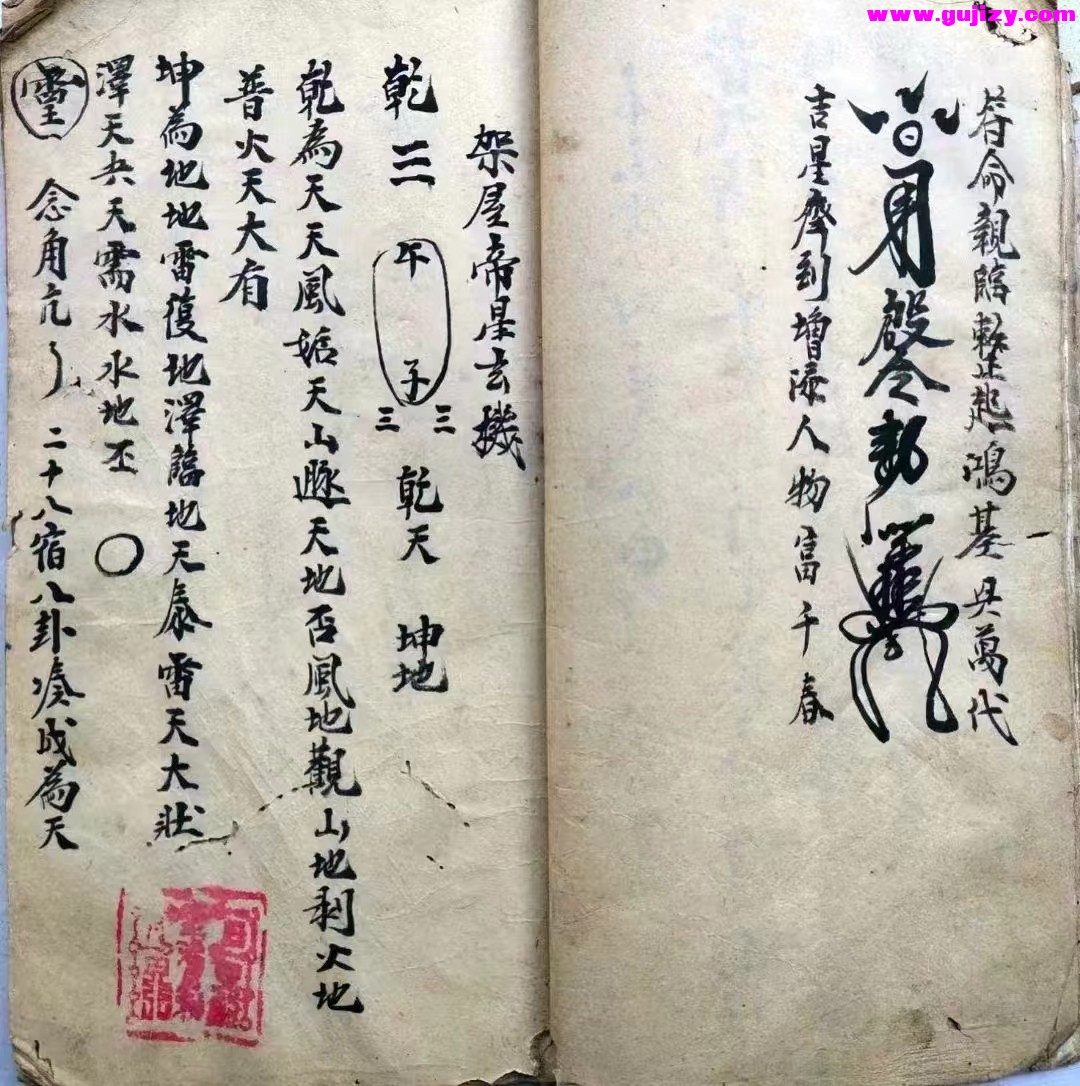 www.gujizy.com
荐命親臨 起鴻基 萬代
令
吉星齊到增添人物富千春
架屋帝星玄機
乾三 午 子 三 三 乾天 坤地
乾為天天風姤天山遯天地否風地觀山地剥火地
普火天大有
坤為地地雷復地澤臨地天泰雷天大壯
澤天夬天需水水地丕
念角亢 二十八宿八卦凑成為天